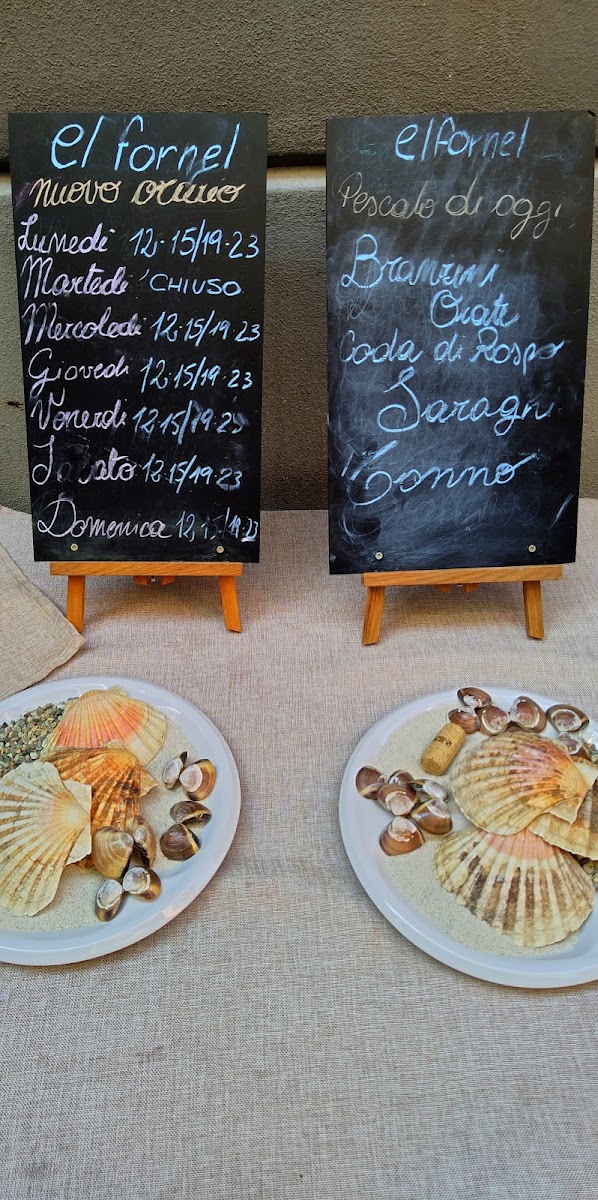 el fornel
nuovo orario
Lunedì 12-15/19-23
Martedì CHIUSO
Mercoledì 12-15/19-23
Giovedì 12-15/19-23
Venerdì 12-15/19-23
Sabato 12-15/19-23
Domenica 12-15/19-23
el fornel
Pescato di oggi
Branzini
Orate
Coda di Rospo
Saraghi
Tonno